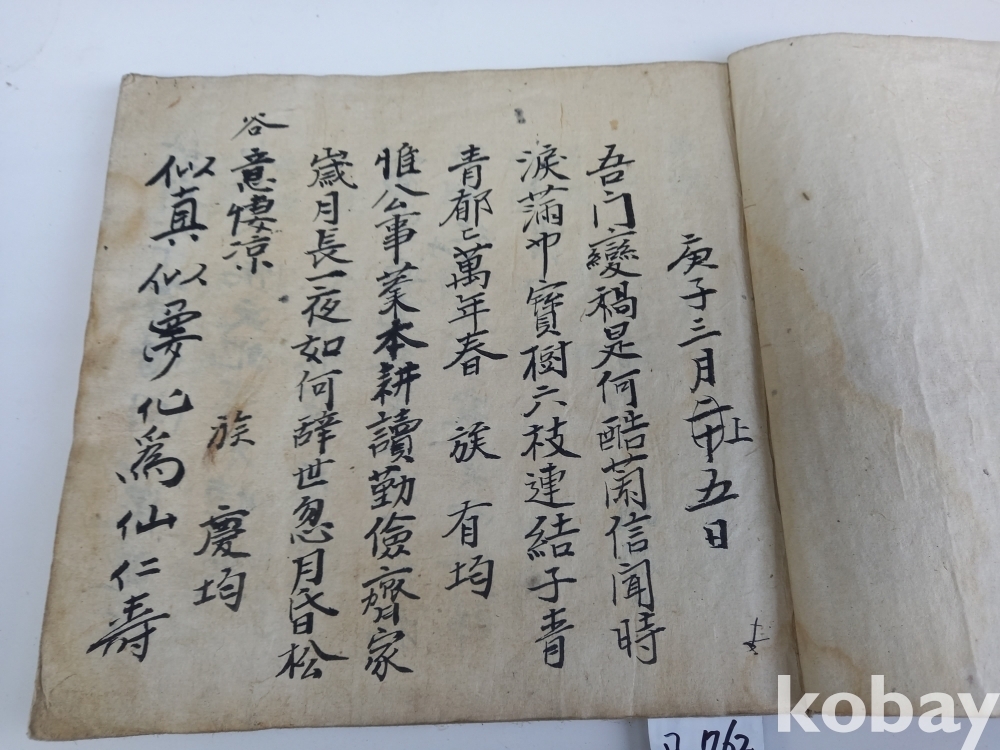 庚子三月二十五日
上
吾门變禍是何酷蘭信闻時
淚滿巾寶樹六枝連結子青
青郁〻萬年春 族 有均
惟公事業本耕讀勤儉齊家
歲月長一夜如何辭世忽月昏松
谷意悽凉 族 慶均
似真似夢化為仙仁壽
kobay
762